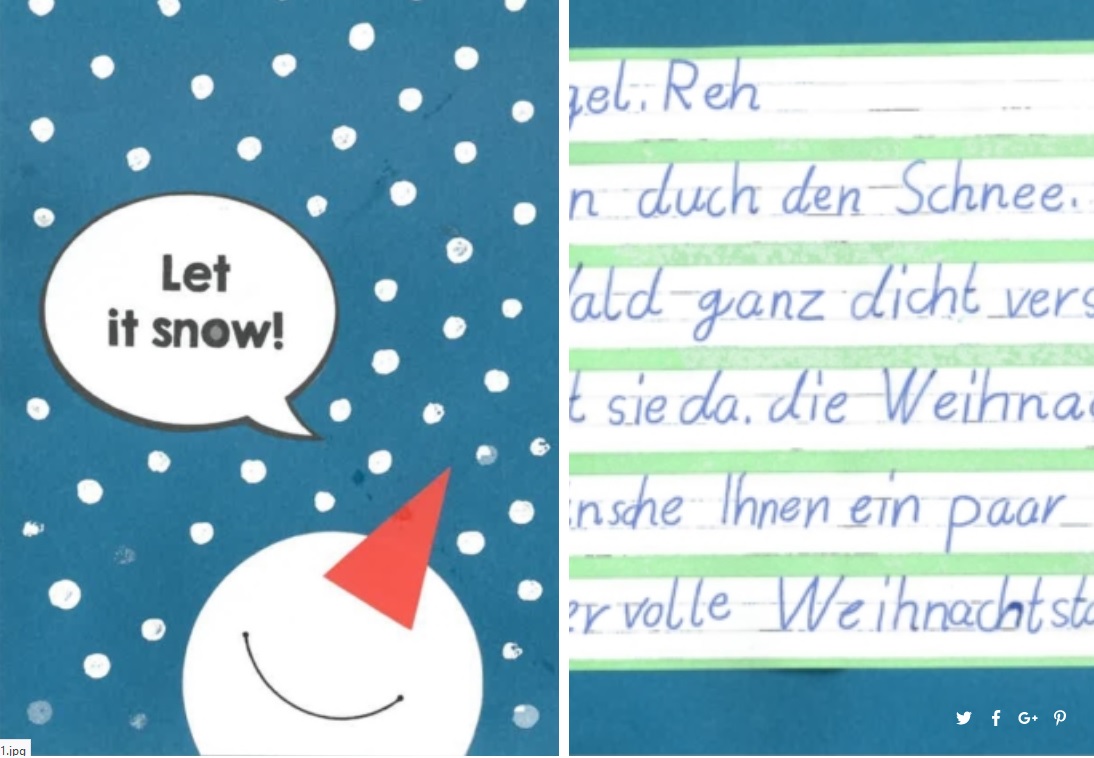 Let
it snow!
gel. Reh
n duch den Schnee.
ald ganz dicht vers
t sie da. die Weihnac
nsche Ihnen ein paar
er volle Weihnachtsta
1.jpg